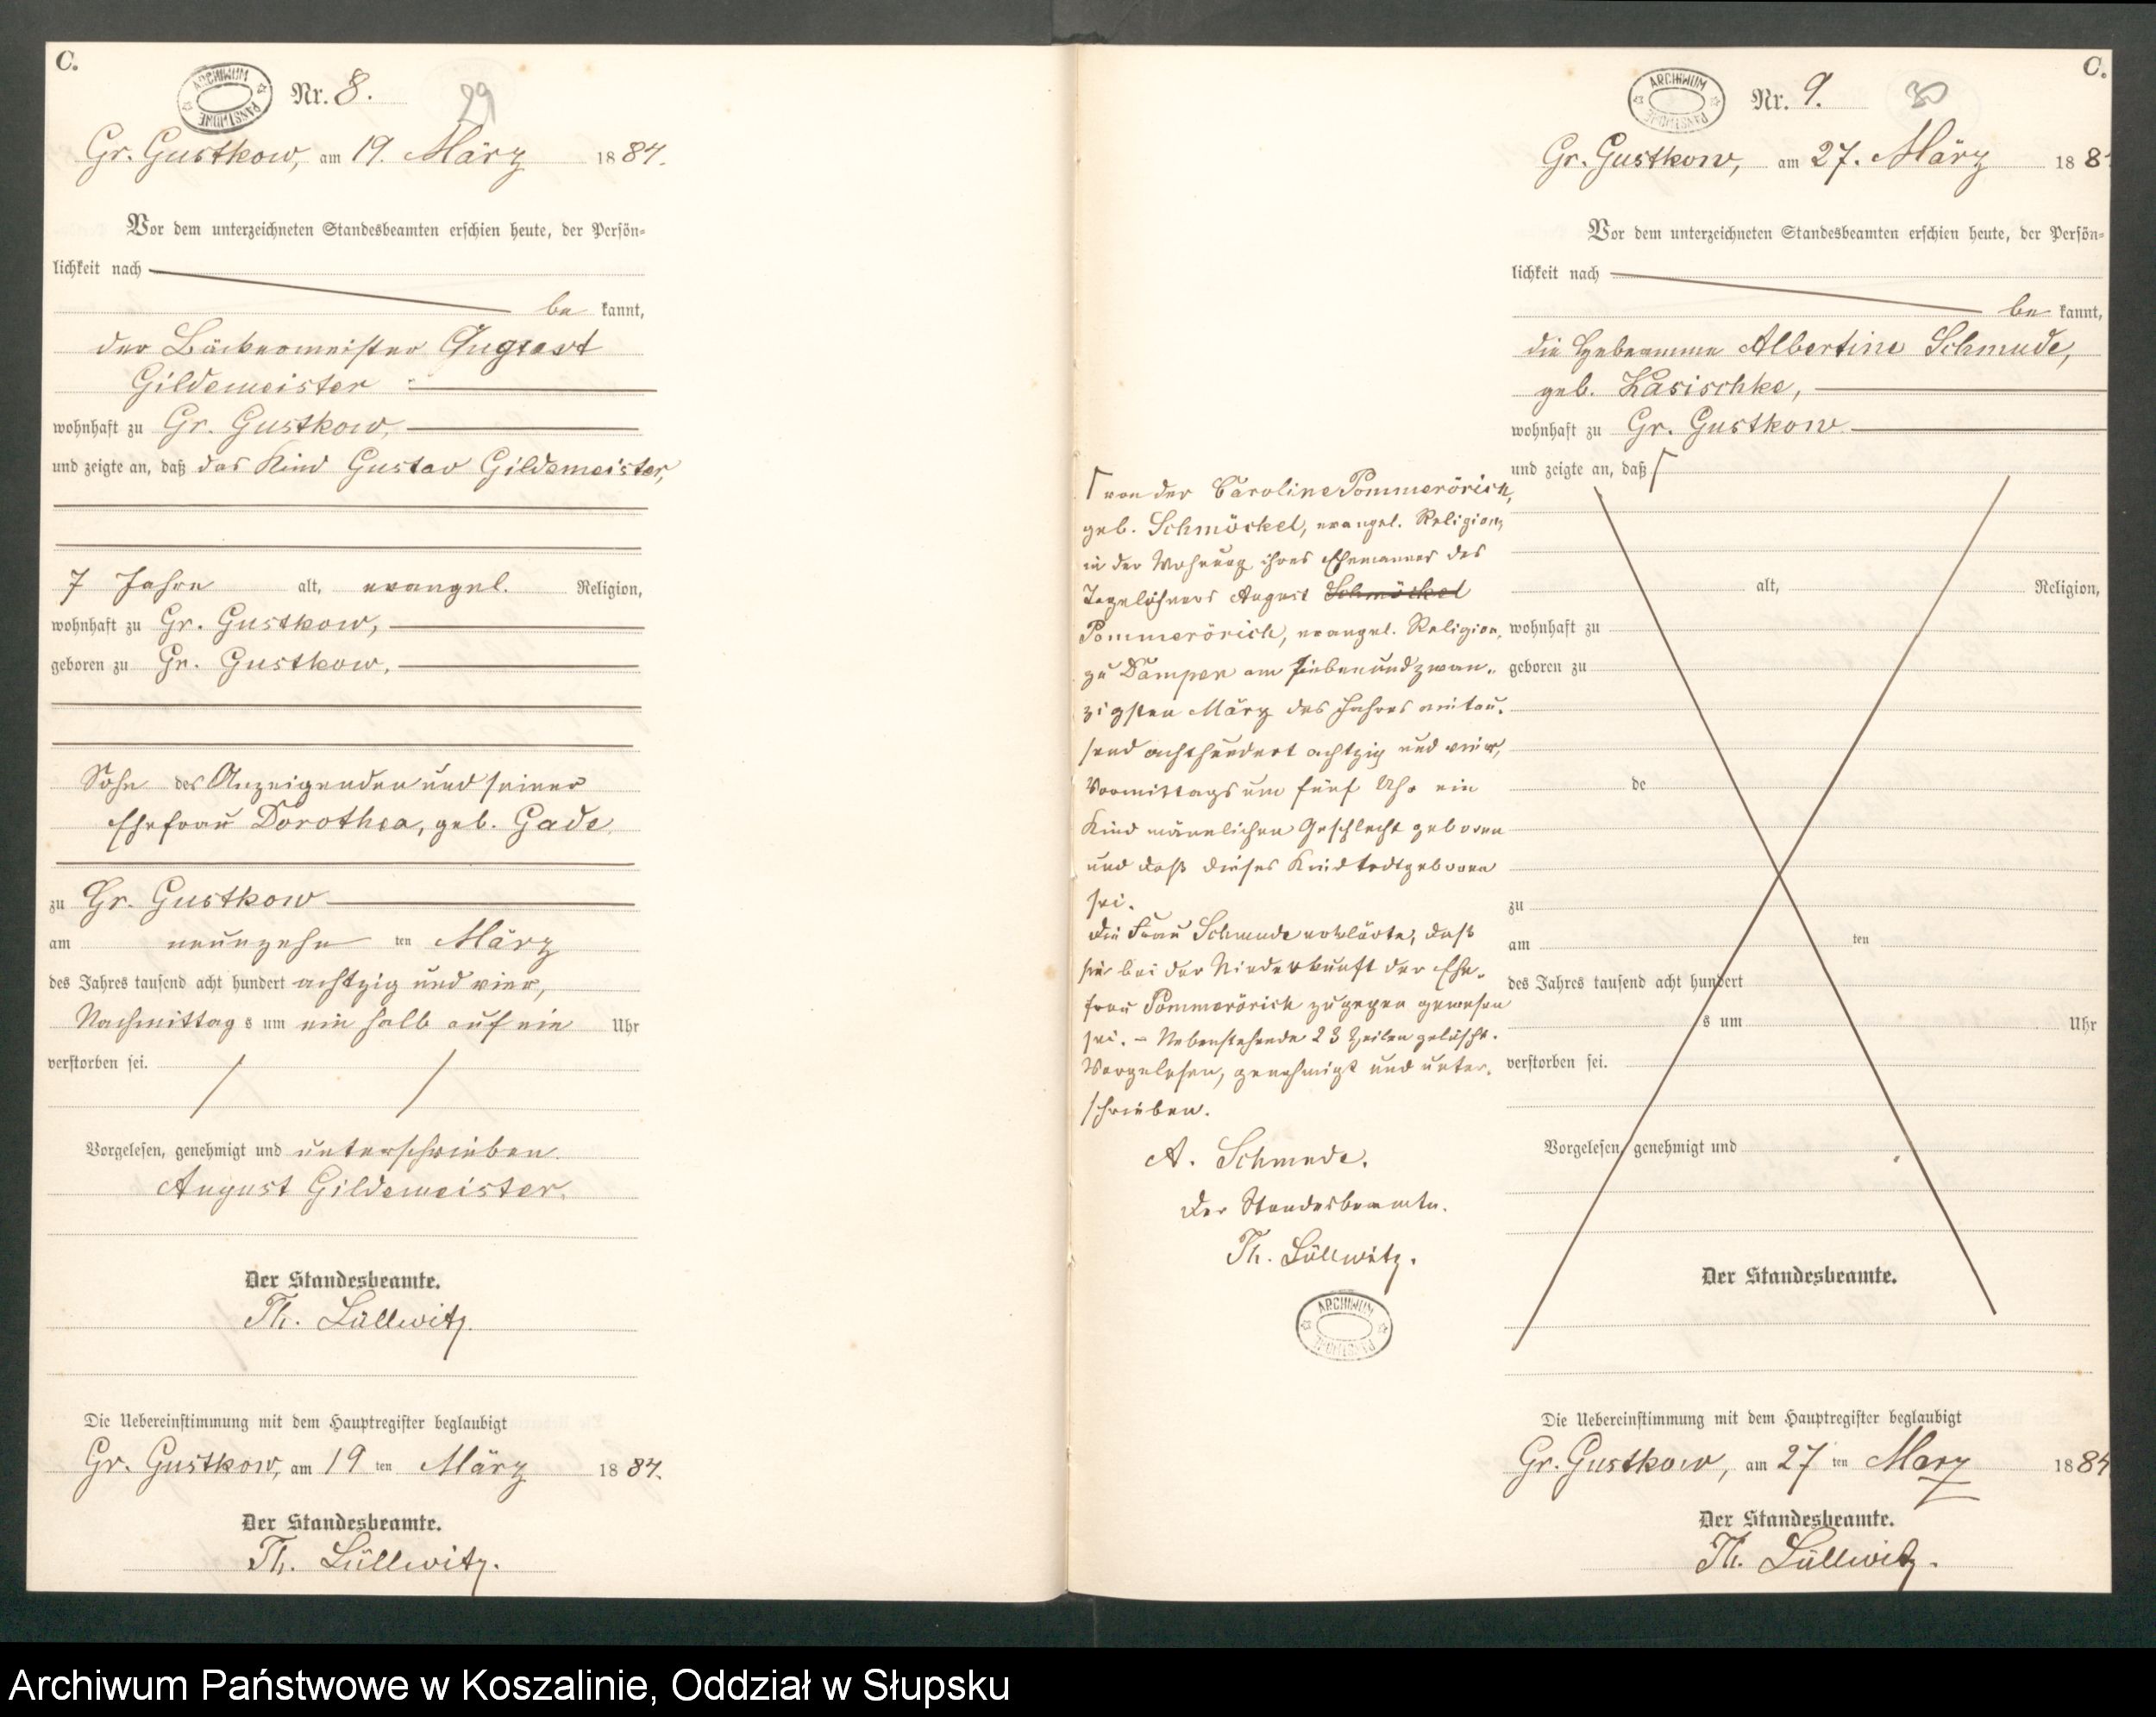 C.
ARCHIWUM PAŃSTWOWE
Nr. 8.
29
Gr. Gustkow, am 19. März 1884.
Vor dem unterzeichneten Standesbeamten erschien heute, der Persön-
lichkeit nach
be kannt,
der Bäckermeister August
Gildemeister
wohnhaft zu Gr. Gustkow,
und zeigte an, daß das Kind Gustav Gildemeister,
7 Jahre alt, evangel. Religion,
wohnhaft zu Gr. Gustkow,
geboren zu Gr. Gustkow,
Sohn des Anzeigenden und seiner
Ehefrau Dorothea, geb. Gade
zu Gr. Gustkow
am neunzehn ten März
des Jahres tausend acht hundert achtzig und vier,
Nachmittag s um ein halb auf ein Uhr
verstorben sei.
Vorgelesen, genehmigt und unterschrieben.
August Gildemeister.
Der Standesbeamte.
Th. Lüllwitz.
Die Uebereinstimmung mit dem Hauptregister beglaubigt
Gr. Gustkow, am 19 ten März 1884.
Der Standesbeamte.
Th. Lüllwitz.
C.
ARCHIWUM PAŃSTWOWE
Nr. 9.
30
Gr. Gustkow, am 27. März 188
Vor dem unterzeichneten Standesbeamten erschien heute, der Persön-
lichkeit nach
be kannt,
die Hebeamme Albertine Schmude,
geb. Kasischke,
wohnhaft zu Gr. Gustkow
und zeigte an, daß
von der Caroline Pommerörich,
geb. Schmöckel, evangel. Religion,
in der Wohnung ihres Ehemannes des
Tagelöhners August Schmöckel
Pommerörich, evangel. Religion,
zu Dampen am siebenundzwan-
zigsten März des Jahres eintau-
send achthundert achtzig und vier,
Vormittags um fünf Uhr ein
Kind männlichen Geschlecht geboren
und daß dieses Kind todtgeboren
sei.
Die Frau Schmude erklärte, daß
sie bei der Niederkunft der Ehe-
frau Pommerörich zugegen gewesen
sei. – Nebenstehende 23 Zeilen gelöscht.
Vorgelesen, genehmigt und unter-
schrieben.
A. Schmude.
Der Standesbeamte.
Th. Lüllwitz.
ARCHIWUM PAŃSTWOWE
alt, Religion,
wohnhaft zu
geboren zu
de
zu
am ten
des Jahres tausend acht hundert
s um Uhr
verstorben sei.
Vorgelesen, genehmigt und
Der Standesbeamte.
Die Uebereinstimmung mit dem Hauptregister beglaubigt
Gr. Gustkow, am 27 ten März 1884
Der Standesbeamte.
Th. Lüllwitz.
Archiwum Państwowe w Koszalinie, Oddział w Słupsku